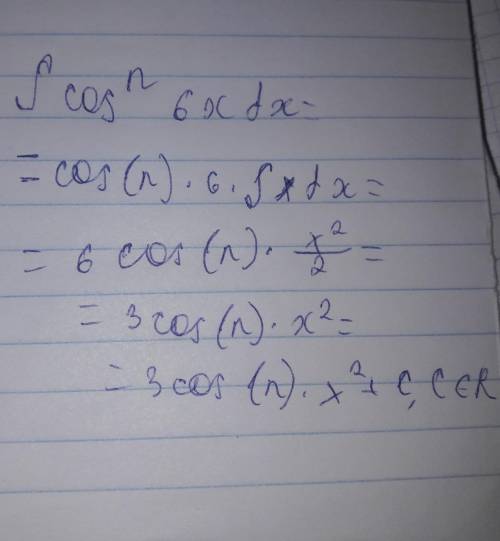 ∫ cosⁿ 6x dx =
= cos(n) · 6 · ∫ x dx =
= 6 cos(n) · x²/2 =
= 3 cos(n) · x² =
= 3 cos(n) · x² + C, C ∈ R